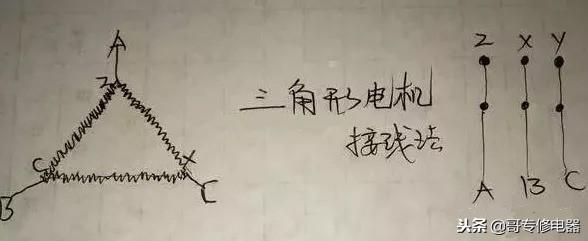 A
Z
C X
B C
三角形电机
接线法
Z X Y
A B C
头条 @哥专修电器